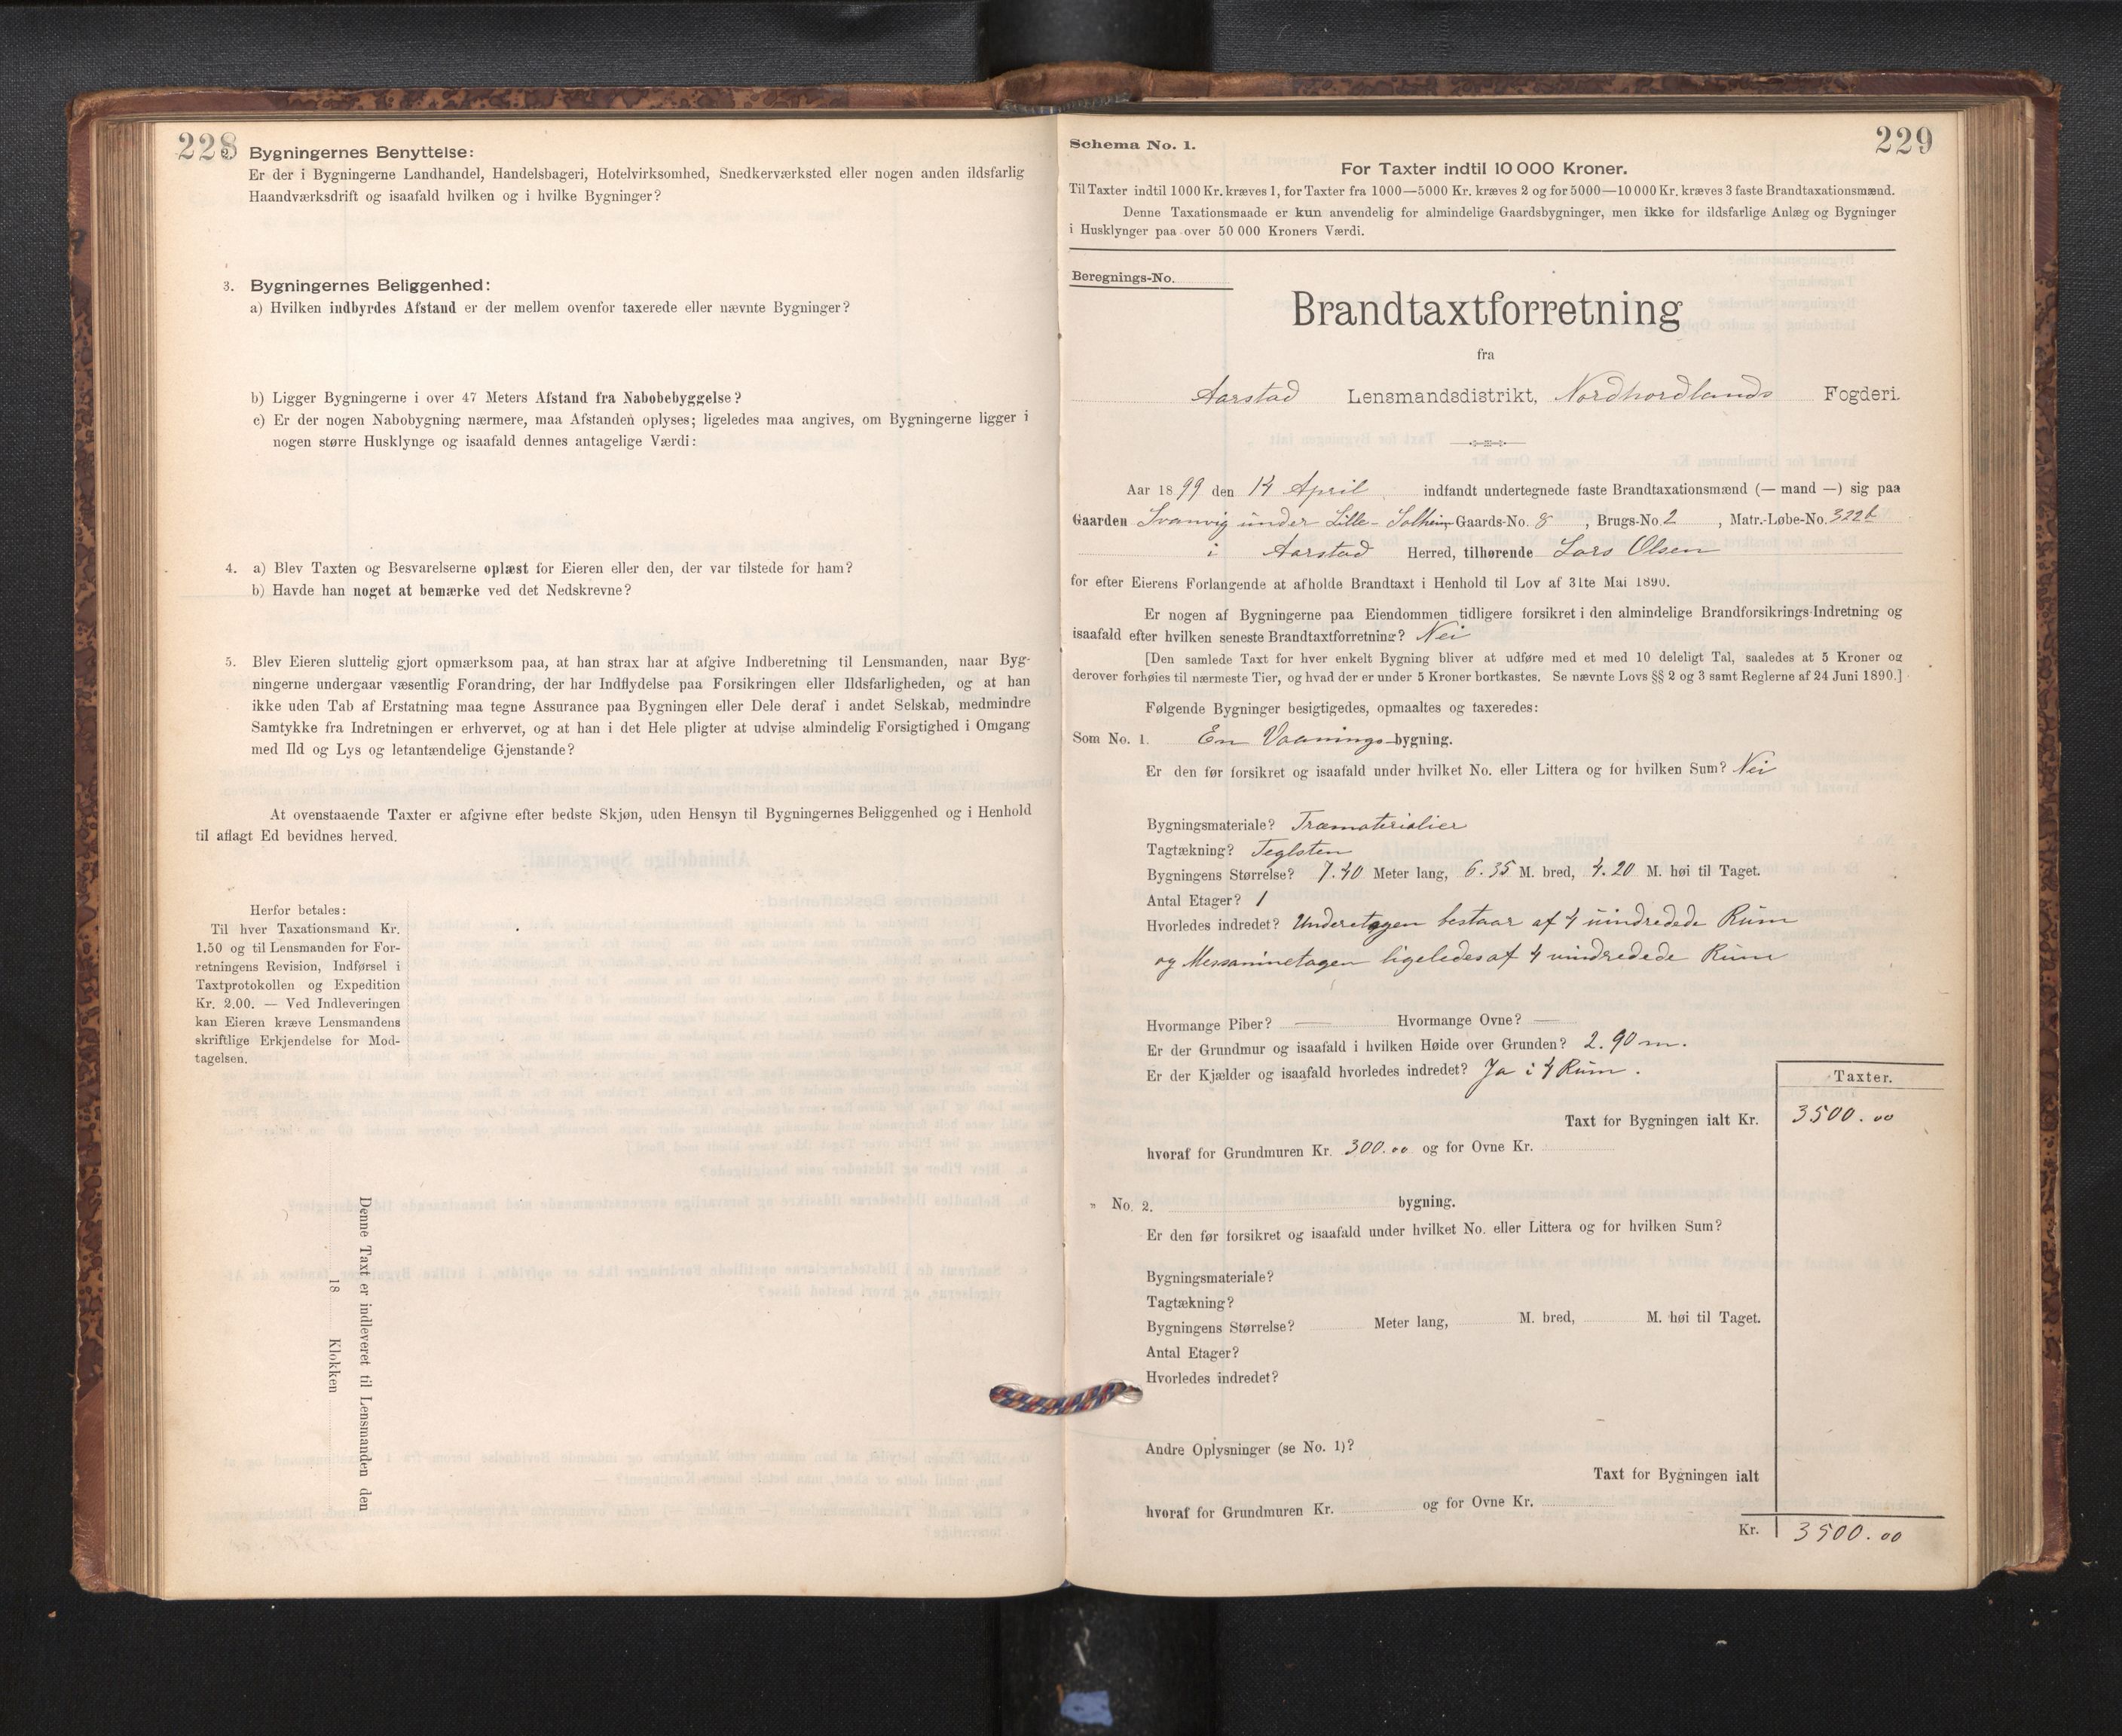 228
Bygningernes Benyttelse:
Er der i Bygningerne Landhandel, Handelsbageri, Hotelvirksomhed, Snedkerværksted eller nogen anden ildsfarlig
Haandværksdrift og isaafald hvilken og i hvilke Bygninger?
3. Bygningernes Beliggenhed:
a) Hvilken indbyrdes Afstand er der mellem ovenfor taxerede eller nævnte Bygninger?
b) Ligger Bygningerne i over 47 Meters Afstand fra Nabobebyggelse?
c) Er der nogen Nabobygning nærmere, maa Afstanden oplyses; ligeledes maa angives, om Bygningerne ligger i
nogen større Husklynge og isaafald dennes antagelige Værdi:
4. a) Blev Taxten og Besvarelserne oplæst for Eieren eller den, der var tilstede for ham?
b) Havde han noget at bemærke ved det Nedskrevne?
5. Blev Eieren sluttelig gjort opmærksom paa, at han strax har at afgive Indberetning til Lensmanden, naar Byg-
ningerne undergaar væsentlig Forandring, der har Indflydelse paa Forsikringen eller Ildsfarligheden, og at han
ikke uden Tab af Erstatning maa tegne Assurance paa Bygningen eller Dele deraf i andet Selskab, medmindre
Samtykke fra Indretningen er erhvervet, og at han i det Hele pligter at udvise almindelig Forsigtighed i Omgang
med Ild og Lys og letantændelige Gjenstande?
At ovenstaaende Taxter er afgivne efter bedste Skjøn, uden Hensyn til Bygningernes Beliggenhed og i Henhold
til aflagt Ed bevidnes herved.
Herfor betales:
Til hver Taxationsmand Kr.
1.50 og til Lensmanden for For-
retningens Revision, Indførsel i
Taxtprotokollen og Expedition
Kr. 2.00. — Ved Indleveringen
kan Eieren kræve Lensmandens
skriftlige Erkjendelse for Mod-
tagelsen.
Denne Taxt er indleveret til Lensmanden den
18 Klokken
229
Schema No. 1.
For Taxter indtil 10 000 Kroner.
Til Taxter indtil 1000 Kr. kræves 1, for Taxter fra 1000—5000 Kr. kræves 2 og for 5000—10 000 Kr. kræves 3 faste Brandtaxationsmænd.
Denne Taxationsmaade er kun anvendelig for almindelige Gaardsbygninger, men ikke for ildsfarlige Anlæg og Bygninger
i Husklynger paa over 50 000 Kroners Værdi.
Beregnings-No.
Brandtaxtforretning
fra
Aarstad Lensmandsdistrikt, Nordhordlands Fogderi.
Aar 1899 den 14 April indfandt undertegnede faste Brandtaxationsmænd (— mand —) sig paa
Gaarden Svanvig under Lille-Solheim Gaards-No. 8, Brugs-No. 2, Matr.-Løbe-No. 322b
i Aarstad Herred, tilhørende Lars Olsen
for efter Eierens Forlangende at afholde Brandtaxt i Henhold til Lov af 31te Mai 1890.
Er nogen af Bygningerne paa Eiendommen tidligere forsikret i den almindelige Brandforsikrings-Indretning og
isaafald efter hvilken seneste Brandtaxtforretning? Nei
[Den samlede Taxt for hver enkelt Bygning bliver at udføre med et med 10 deleligt Tal, saaledes at 5 Kroner og
derover forhøies til nærmeste Tier, og hvad der er under 5 Kroner bortkastes. Se nævnte Lovs §§ 2 og 3 samt Reglerne af 24 Juni 1890.]
Følgende Bygninger besigtigedes, opmaaltes og taxeredes:
Som No. 1. En Vaaningsbygning.
Er den før forsikret og isaafald under hvilket No. eller Littera og for hvilken Sum? Nei
Bygningsmateriale? Træmaterialier
Tagtækning? Teglsten
Bygningens Størrelse? 7.40 Meter lang, 6.35 M. bred, 4.20 M. høi til Taget.
Antal Etager? 1
Hvorledes indredet? Underetagen bestaar af 4 uindredede Rum
og Messaninetagen ligeledes af 4 uindredede Rum
Hvormange Piber? — Hvormange Ovne? —
Er der Grundmur og isaafald i hvilken Høide over Grunden? 2.90 m.
Er der Kjælder og isaafald hvorledes indredet? Ja i 4 Rum.
Taxter.
Taxt for Bygningen ialt Kr. 3500.00
hvoraf for Grundmuren Kr. 300.00 og for Ovne Kr.
" No. 2. bygning.
Er den før forsikret og isaafald under hvilket No. eller Littera og for hvilken Sum?
Bygningsmateriale?
Tagtækning?
Bygningens Størrelse? Meter lang, M. bred, M. høi til Taget.
Antal Etager?
Hvorledes indredet?
Andre Oplysninger (se No. 1)?
Taxt for Bygningen ialt
hvoraf for Grundmuren Kr. og for Ovne Kr.
Kr. 3500.00